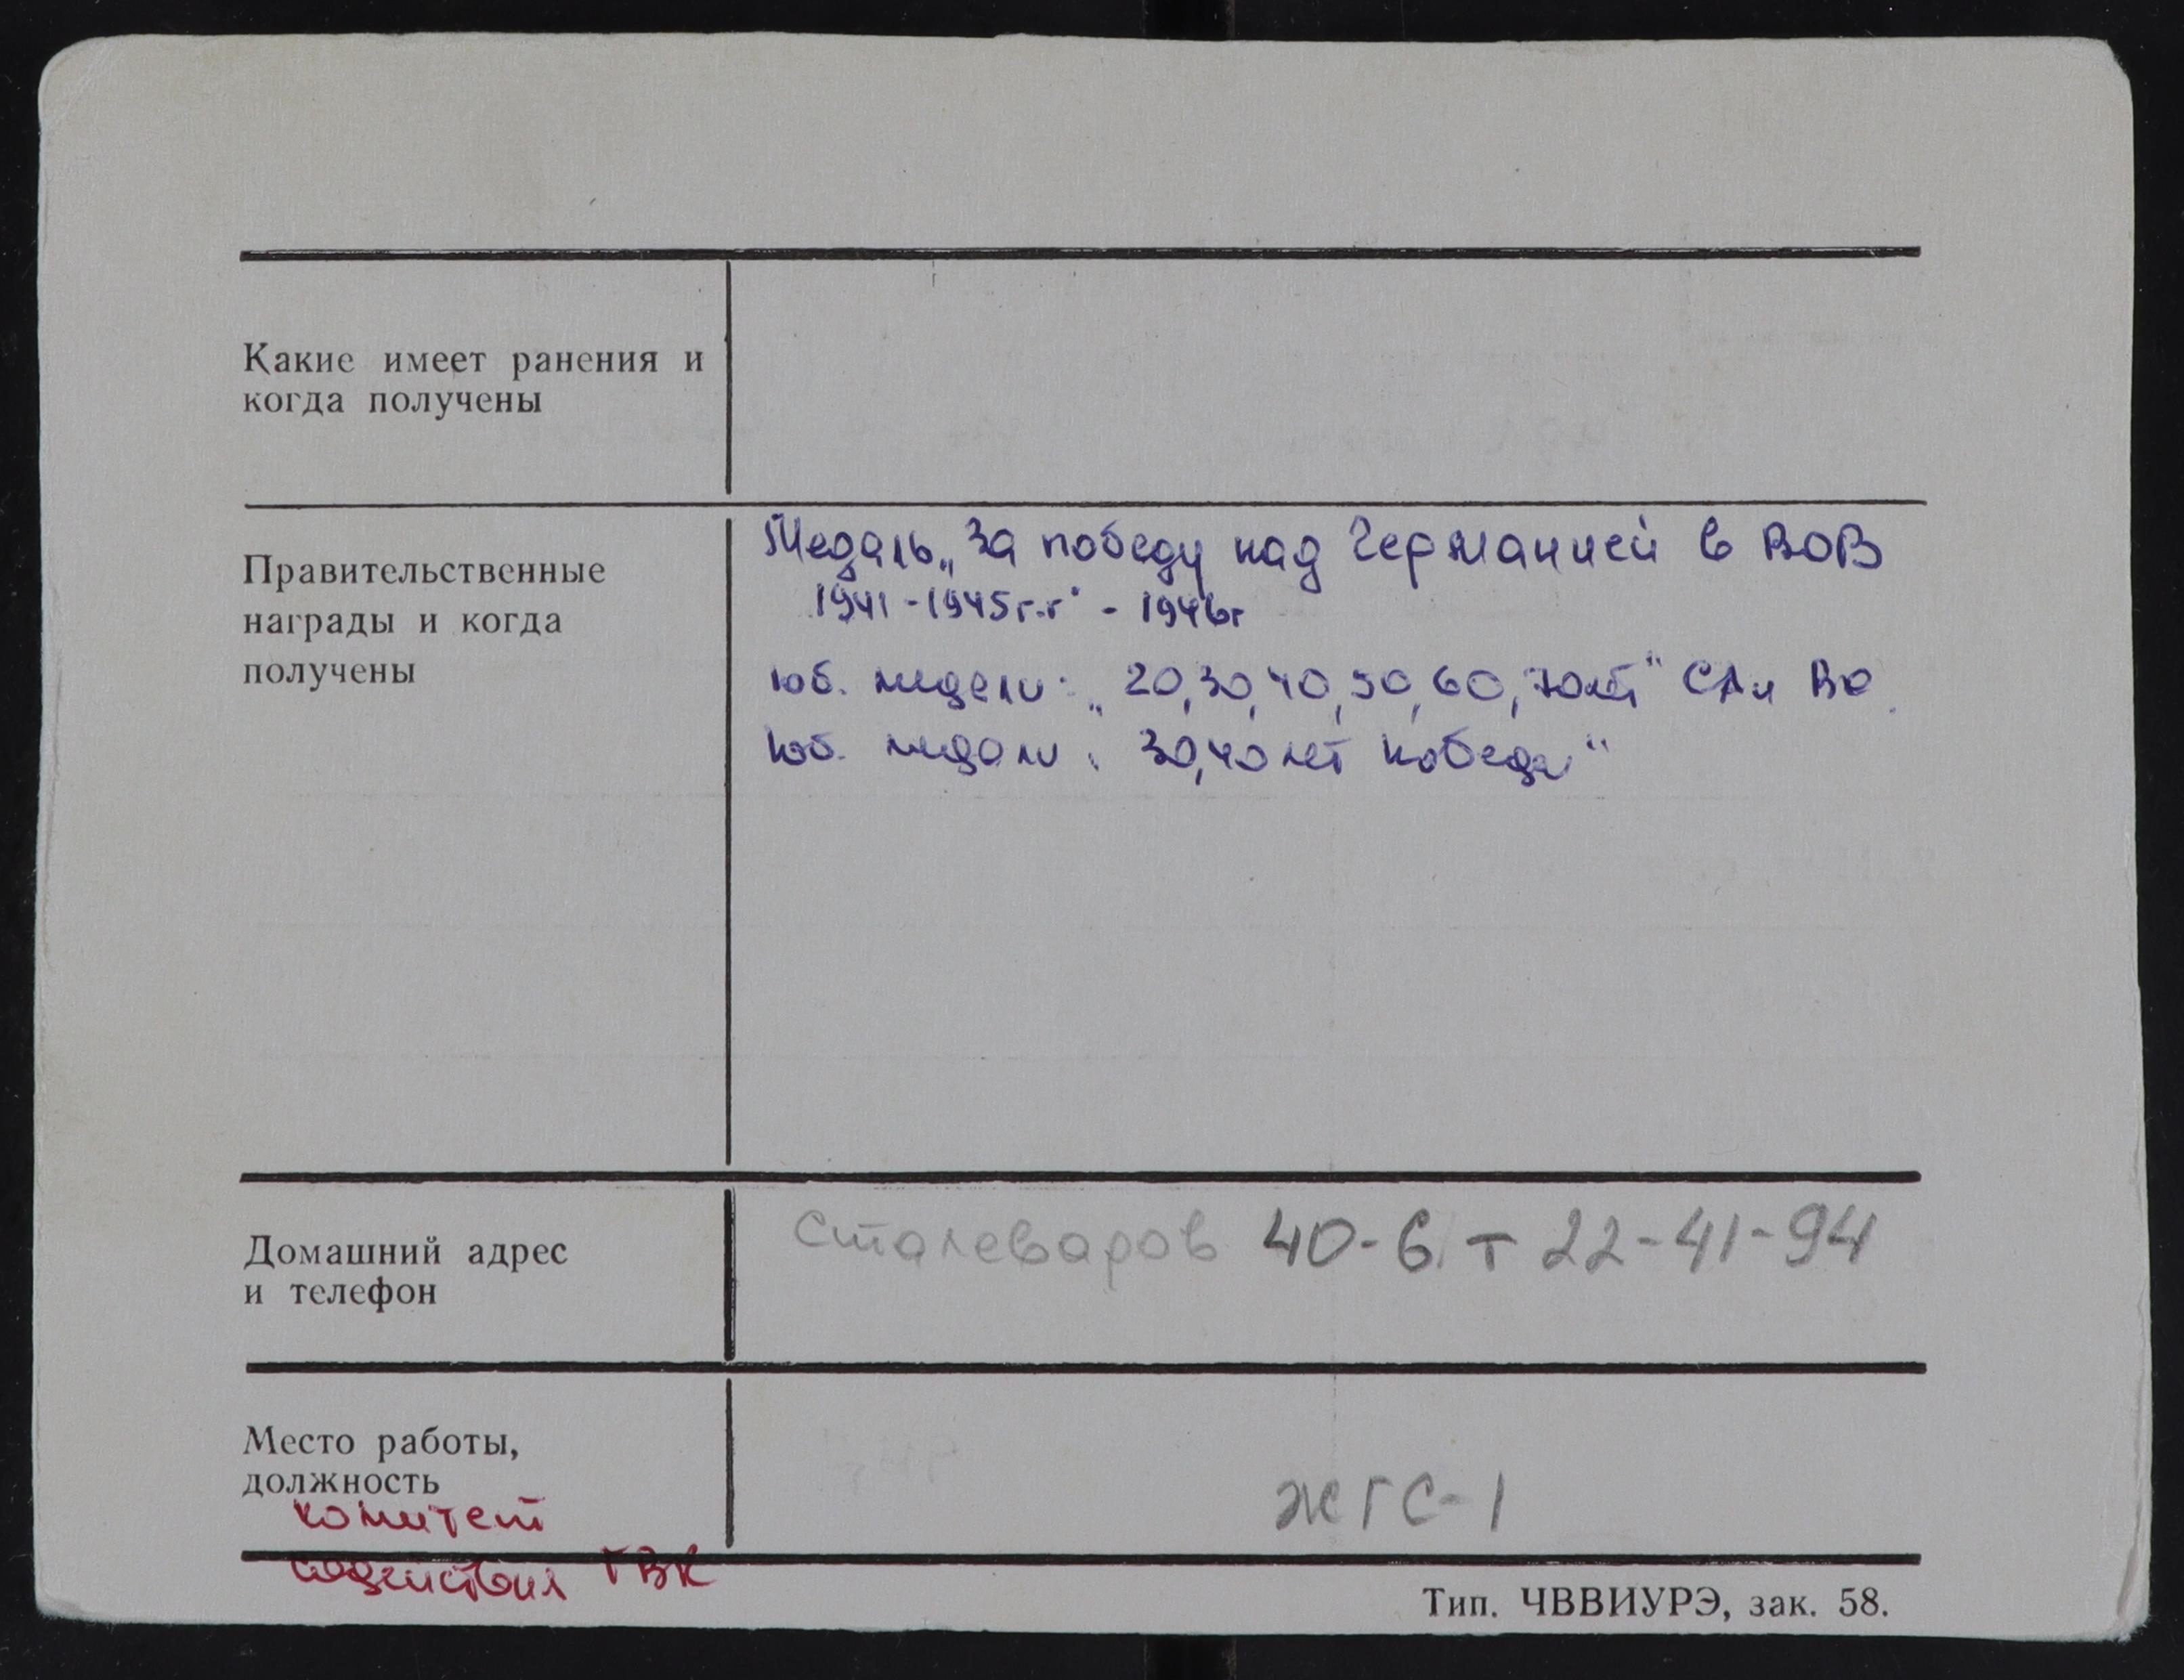 Какие имеет ранения и
когда получены
Правительственные
награды и когда
получены
Медаль „За победу над Германией в ВОВ
1941-1945г.г" - 1946г
юб. медали: „20,30,40,50,60,70лет" СА и ВС
юб. медали: 30,40 лет победы"
Домашний адрес
и телефон
Сталеваров 40-6 т 22-41-94
Место работы,
должность
ЖГС-1
комитет
содействия ГВК
Тип. ЧВВИУРЭ, зак. 58.